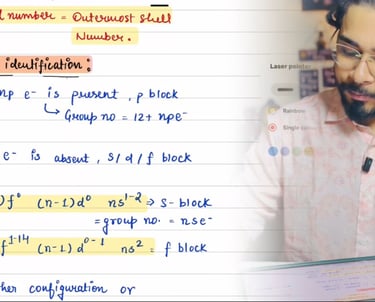 number = Outermost shell
Number.
identification :
np e⁻ is present, p block
↳ Group no = 12 + npe⁻
e⁻ is absent, s/d/f block
)f⁰ (n-1)d⁰ ns¹⁻² ⇒ S-block
= group no. = nse⁻
f¹⁻¹⁴ (n-1)d⁰⁻¹ ns² = f block
configuration or
Laser pointer
Rainbow
Single